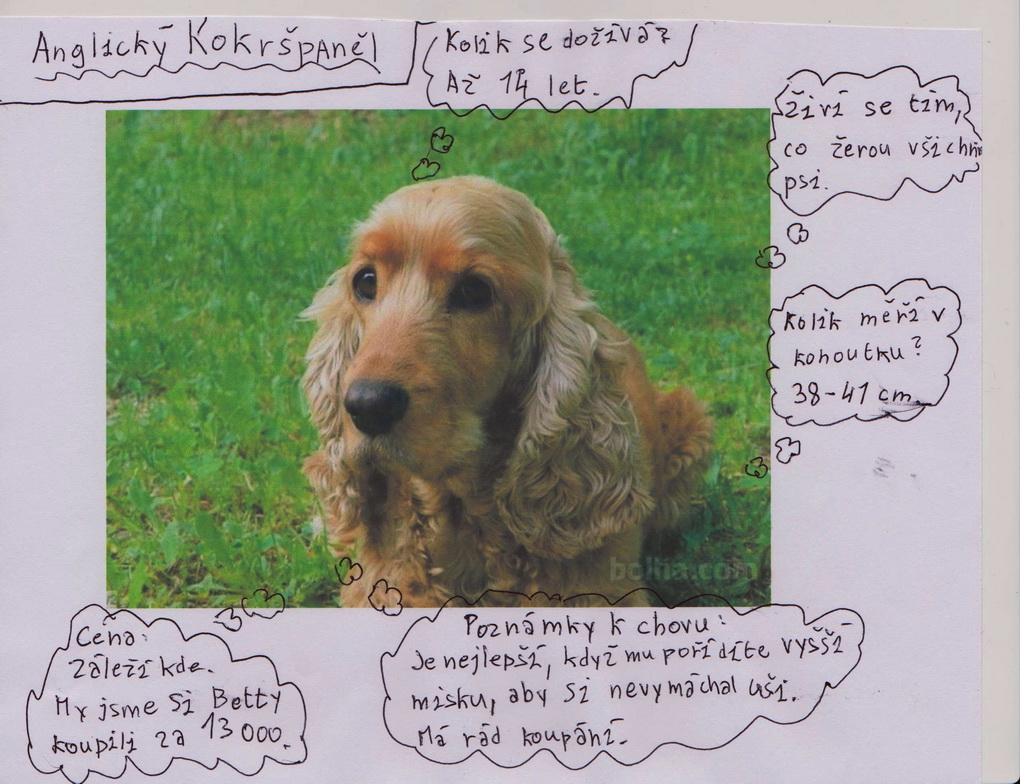 Anglický Kokršpaněl
Kolik se dožívá?
Až 14 let.
Živí se tím,
co žerou všichni
psi.
Kolik měří v
kohoutku?
38-41 cm.
bolha.com
Cena:
Záleží kde.
My jsme si Betty
koupili za 13 000.
Poznámky k chovu:
Je nejlepší, když mu pořídíte vyšší
misku, aby si nevymáchal uši.
Má rád koupání.